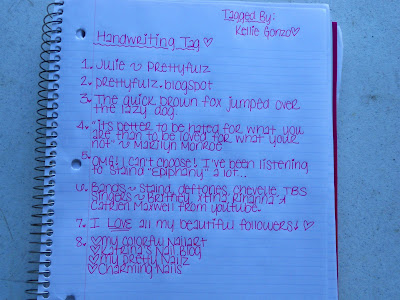 Tagged By:
Kellie Gonzo♡
Handwriting Tag♡
1. Julie ~ Prettyfulz
2. prettyfulz.blogspot
3. The quick brown fox jumped over
the lazy dog.
4. "its better to be hated for what you
are than to be loved for what your
not" ~ Marilyn Monroe
5. OMG! I can't choose! I've been listening
to Staind "Epiphany" a lot...
6. Bands ~ staind, deftones, chevelle, TBS
Singers ~ Britney, xtina, Rihanna &
Caitlen Maxwell from youtube.
7. I LOVE all my beautiful followers! ♡
8. ♡My colorful Nailart
♡Katrina's Nail Blog
♡My pretty Nailz
♡Charming Nails